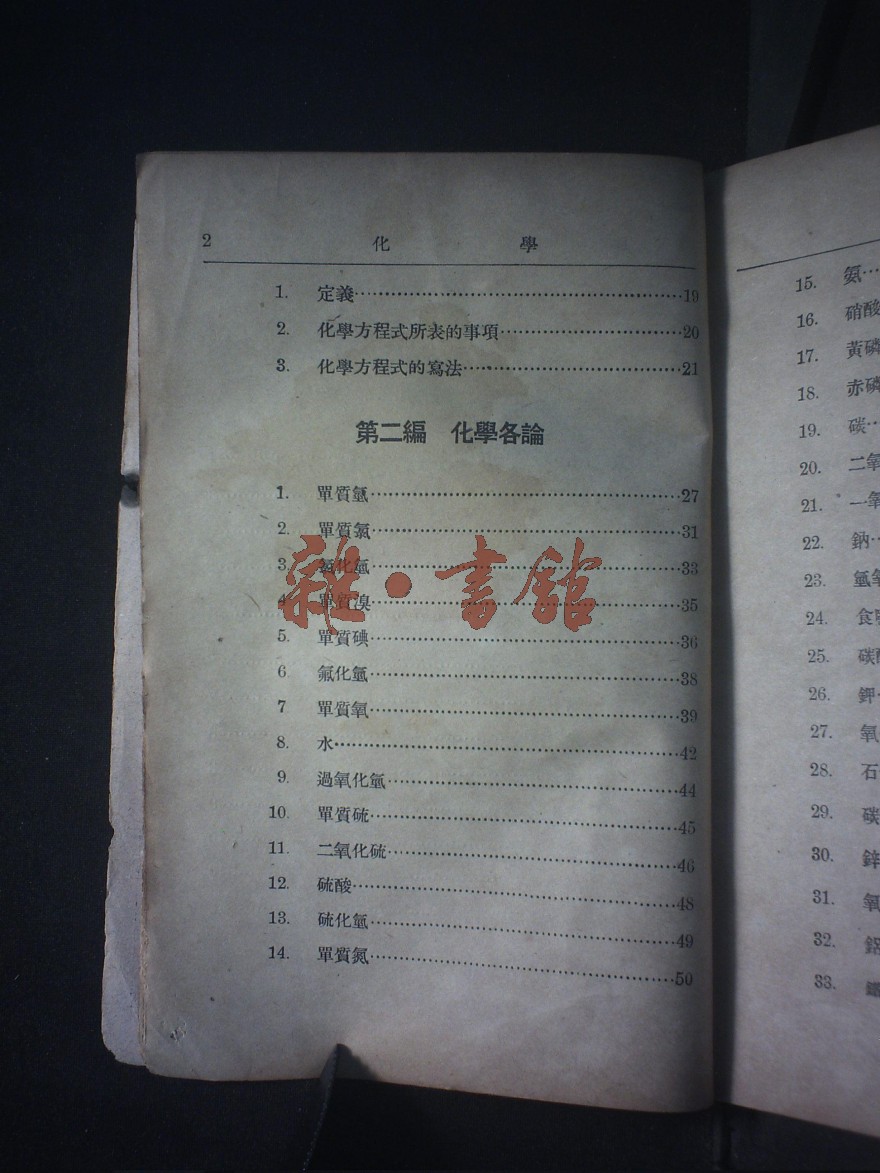 2 化 學
1. 定義……19
2. 化學方程式所表的事項……20
3. 化學方程式的寫法……21
第二編 化學各論
1. 單質氫……27
2. 單質氯……31
3. 氯化氫……33
4. 單質溴……35
5. 單質碘……36
6 氟化氫……38
7 單質氧……39
8. 水……42
9. 過氧化氫……44
10. 單質硫……45
11. 二氧化硫……46
12. 硫酸……48
13. 硫化氫……49
14. 單質氮……50
雜·書館
15. 氨…
16. 硝酸
17. 黃磷
18. 赤磷
19. 碳…
20. 二氧
21. 一氧
22. 鈉…
23. 氫氧
24. 食
25. 碳
26. 鉀
27. 氧
28. 石
29. 碳
30. 鋅
31. 氧
32.
33.